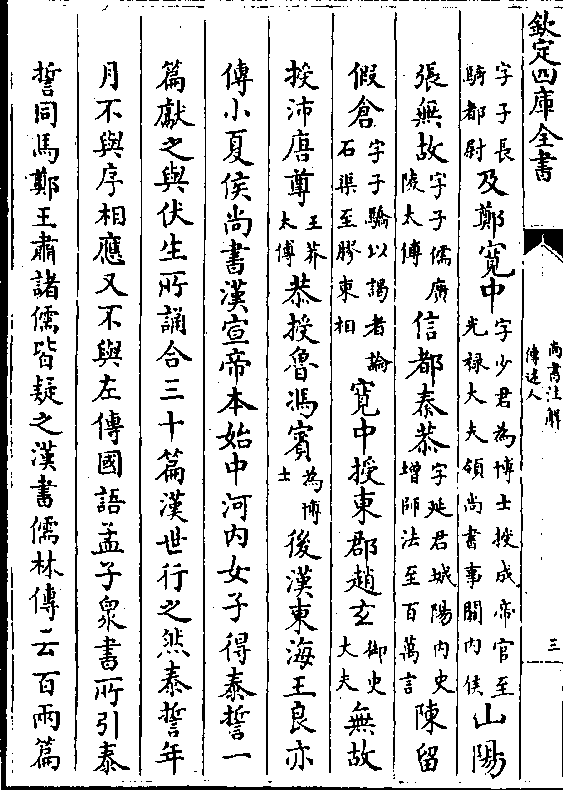 欽定四庫全書
尚書注解傳述人
三
字子長騎都尉及鄭寬中字少君為博士授成帝官至光祿大夫領尚書事關內侯山陽
張無故字子儒廣陵太傅信都秦恭字延君城陽內史增師法至百萬言陳留
假倉字子驕以謁者論石渠至膠東相寛中授東郡趙玄御史大夫無故
授沛唐尊王莽太傅恭授魯馮賓為博士後漢東海王良亦
傳小夏侯尚書漢宣帝本始中河內女子得泰誓一
篇獻之與伏生所誦合三十篇漢世行之然泰誓年
月不與序相應又不與左傳國語孟子衆書所引泰
誓同馬鄭王肅諸儒皆疑之漢書儒林傳云百兩篇